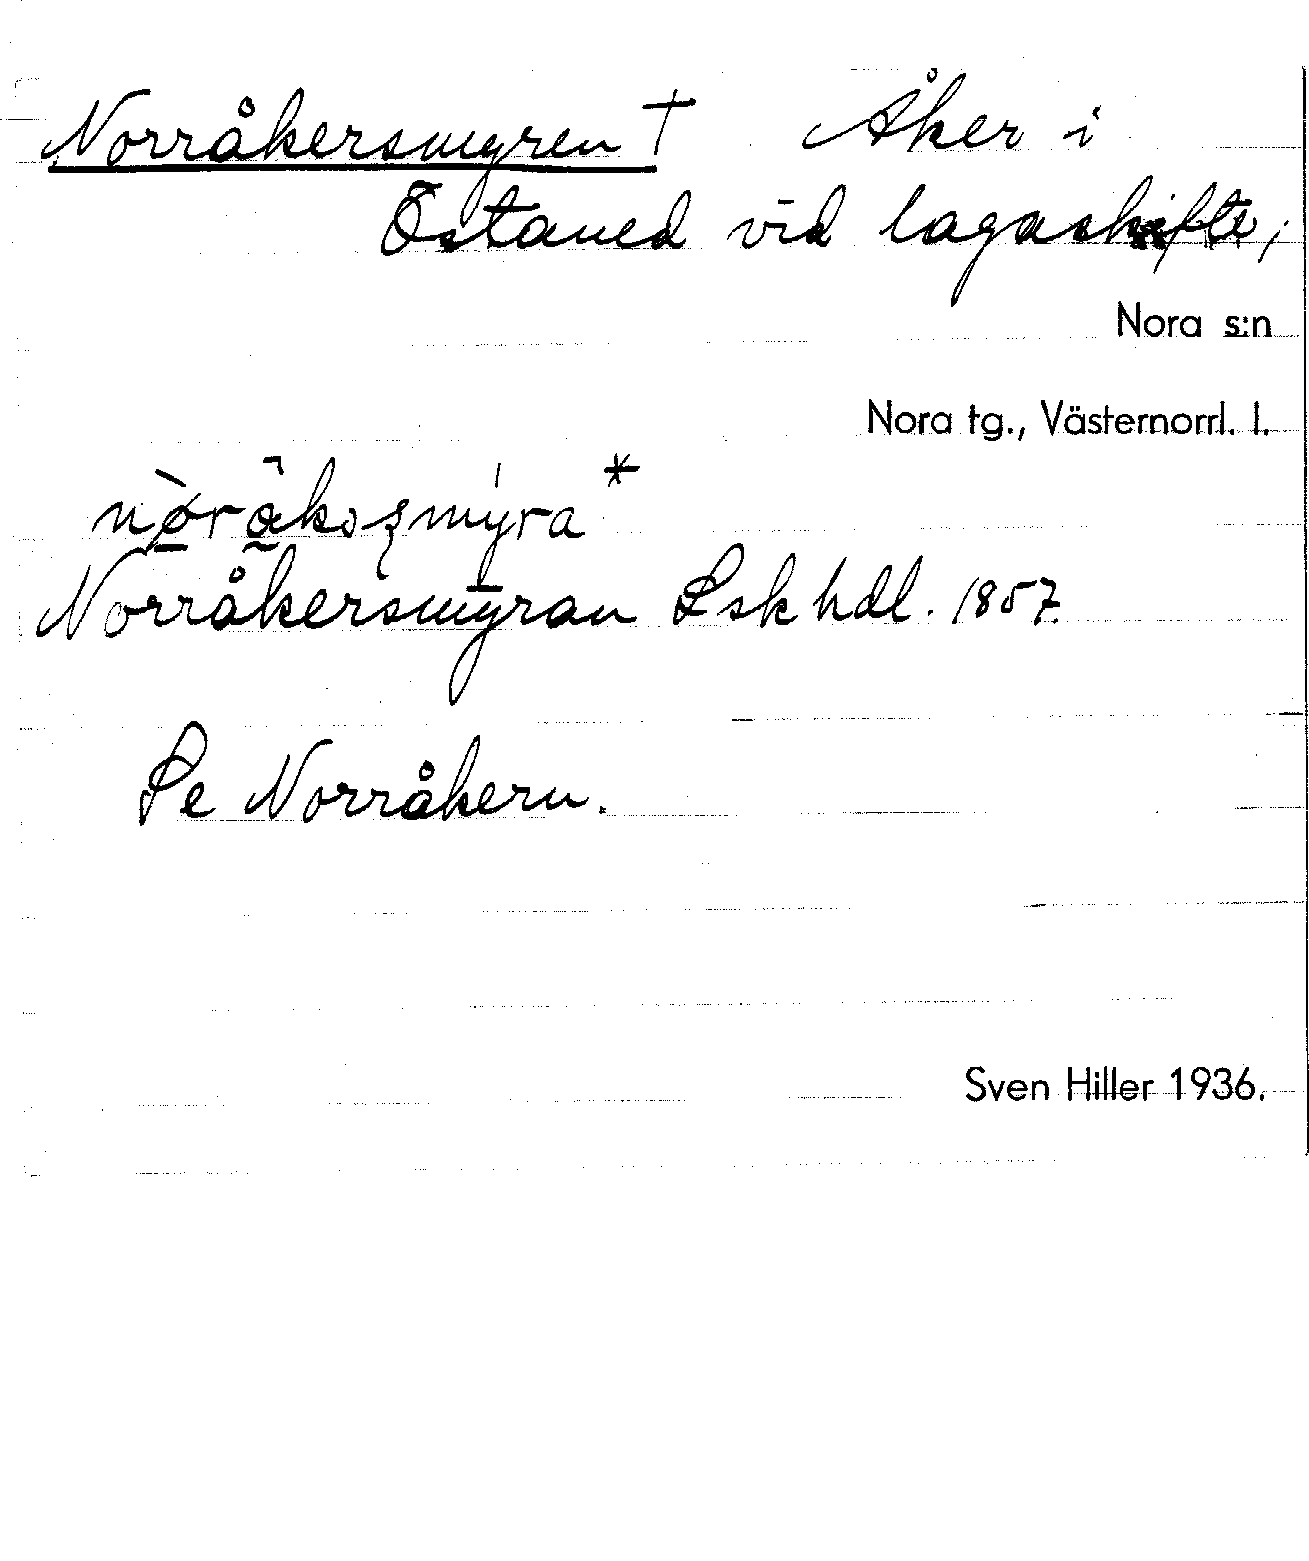 Norråkersmyren † Åker i
Östaned vid lagaskifte,
Nora s:n
Nora tg., Västernorrl. l.
Norråkersmyran Lskhdl. 1857.
Se Norråkern.
Sven Hiller 1936.